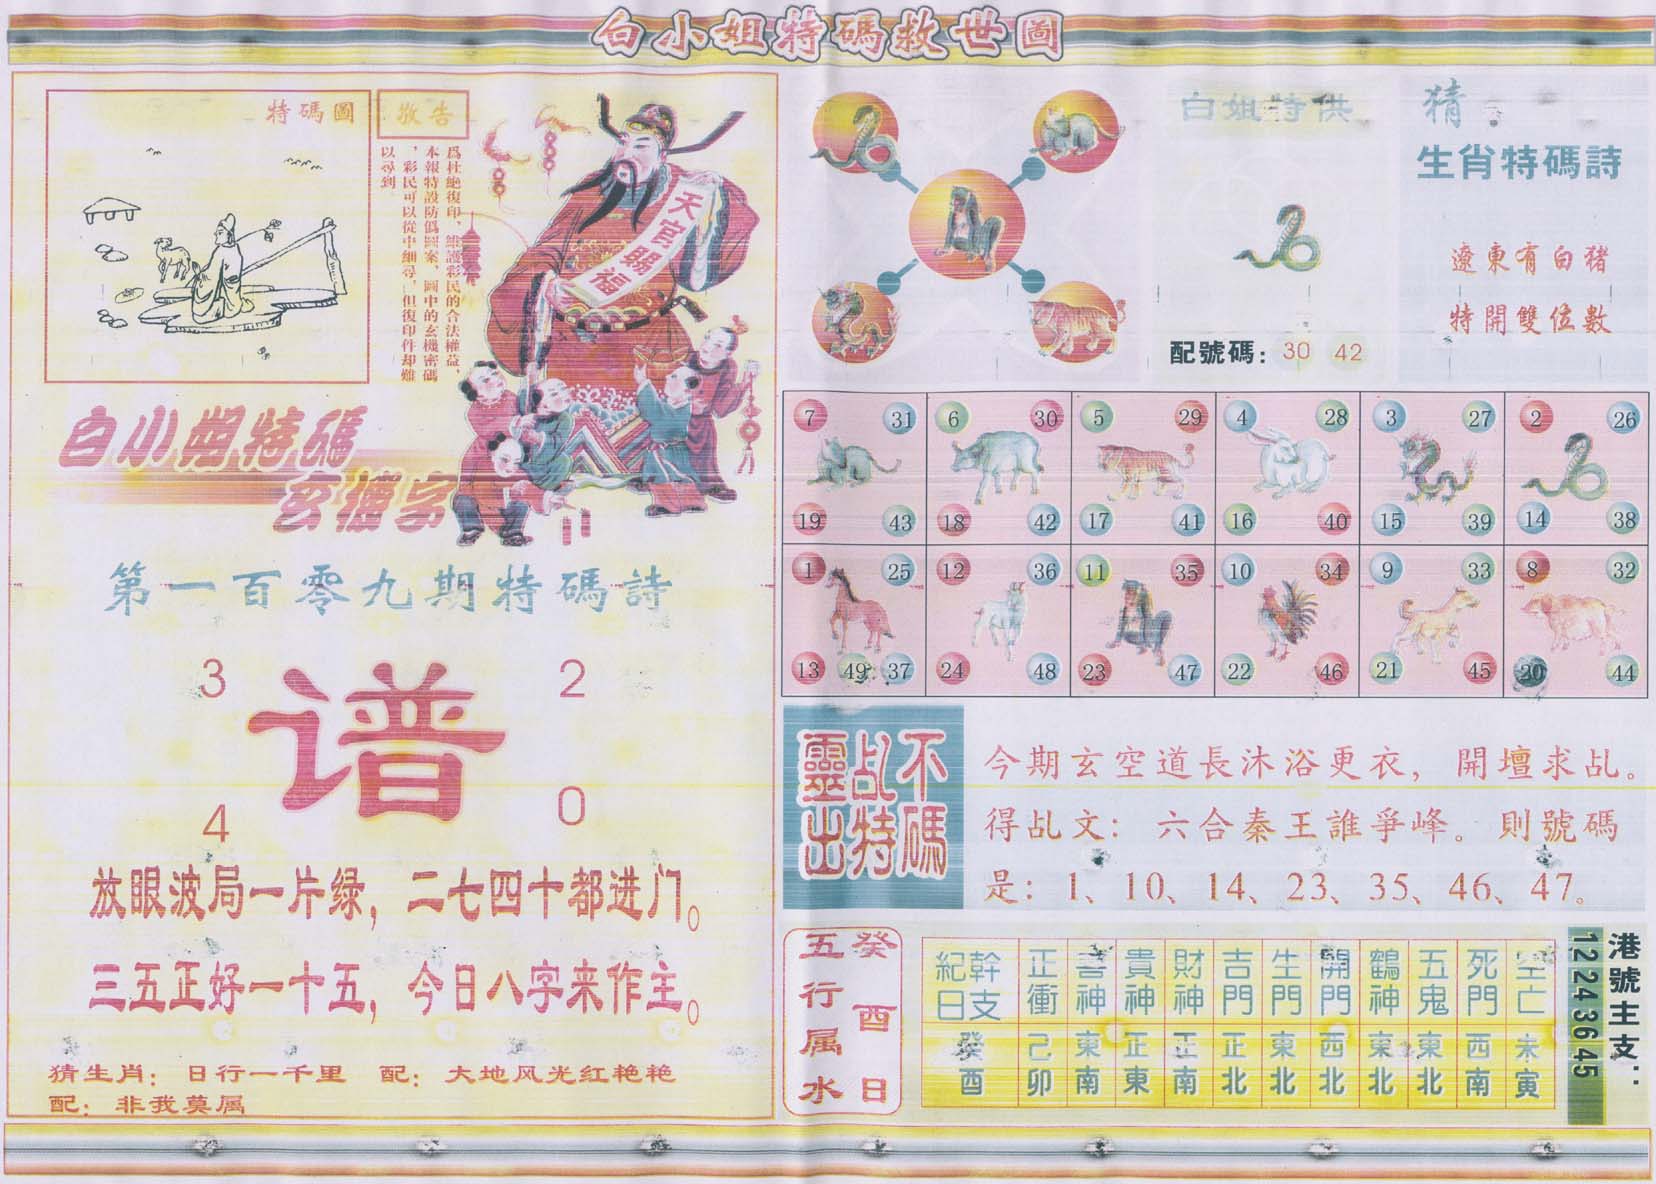 白小姐特碼救世圖
特碼圖
敬告
爲杜絶復印、維護彩民的合法權益，
本報特設防僞圖案，圖中的玄機密碼
，彩民可以從中細尋，但復印件却難
以尋到
天官賜福
白小姐特碼
玄機字
第一百零九期特碼詩
3 2
谱
4 0
放眼波局一片绿，二七四十都进门。
三五正好一十五，今日八字来作主。
猜生肖：日行一千里 配：大地风光红艳艳
配：非我莫属
白姐特供
配號碼：30 42
猜：
生肖特碼詩
遼東有白猪
特開雙位數
7 31 6 30 5 29 4 28 3 27 2 26
19 43 18 42 17 41 16 40 15 39 14 38
1 25 12 36 11 35 10 34 9 33 8 32
13 49 37 24 48 23 47 22 46 21 45 20 44
不碼
乩特
靈出
今期玄空道長沐浴更衣，開壇求乩。
得乩文：六合秦王誰爭峰。則號碼
是：1、10、14、23、35、46、47。
癸酉日
五行属水
幹支紀日 正衝 喜神 貴神 財神 吉門 生門 開門 鶴神 五鬼 死門 空亡
癸酉 己卯 東南 正東 正南 正北 東北 西北 東北 東北 西南 未寅
港號主支：
12 24 36 45